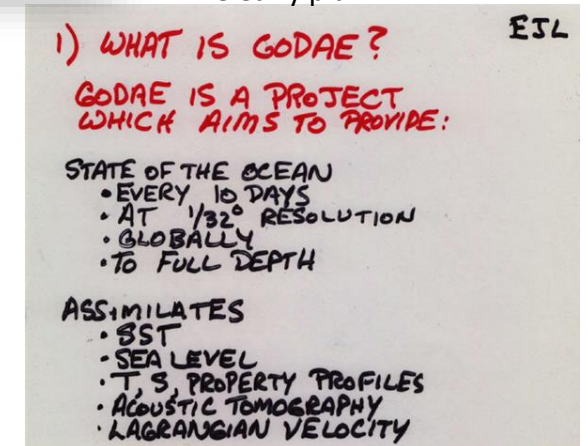 EJL
1) WHAT IS GODAE?
GODAE IS A PROJECT
WHICH AIMS TO PROVIDE:
STATE OF THE OCEAN
• EVERY 10 DAYS
• AT 1/32° RESOLUTION
• GLOBALLY
• TO FULL DEPTH
ASSIMILATES
• SST
• SEA LEVEL
• T, S, PROPERTY PROFILES
• ACOUSTIC TOMOGRAPHY
• LAGRANGIAN VELOCITY